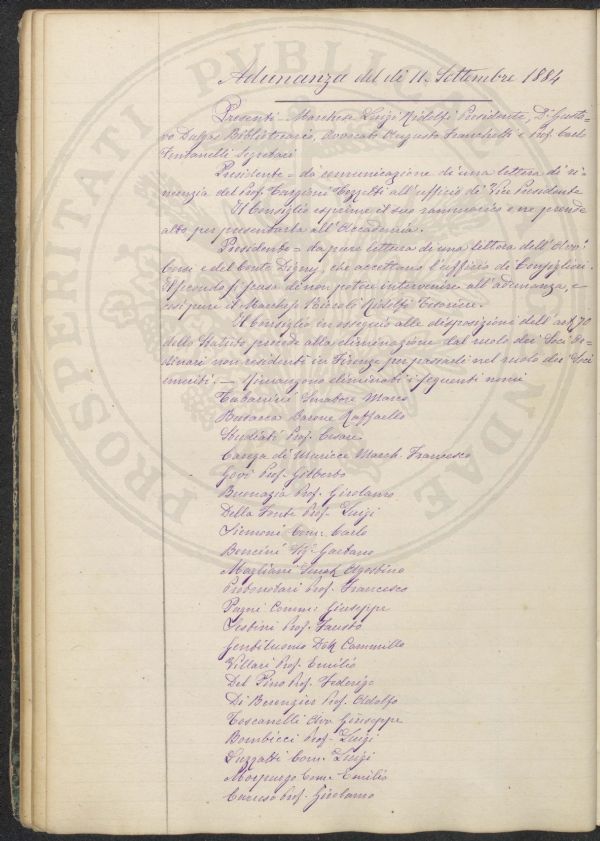 Adunanza del dì 11 Settembre 1884
Presenti = Marchese Luigi Ridolfi Presidente, Di Gusta=
vo Dalgas Bibliotecario, Avvocato Augusto Franchetti e Prof. Carlo
Fontanelli Segretari
Presidente = da comunicazione di una lettera di ri=
nunzia del Prof. Targioni Tozzetti all'ufficio di Vice Presidente
Il Consiglio esprime il suo rammarico e ne prende
atto per presentarla all'Accademia.
Presidente = da pure lettura di una lettera dell'Avv.
e del Conte Digny, che accettano l'ufficio di Consiglieri.
Il secondo si scusa di non poter intervenire all'adunanza, e
così pure il March. Niccolò Ridolfi Tesoriere.
Il Consiglio in ossequio alle disposizioni dell'art. 70
dello Statuto procede alla eliminazione dal ruolo dei Soci Or=
dinari non residenti in Firenze per passarli nel ruolo dei Soci
emeriti. — Rimangono eliminati i seguenti nomi
Tabarrini Senatore Marco
Busacca Barone Raffaello
Studiati Prof. Cesare
Carega di Muricce March. Francesco
Govi Prof. Gilberto
Buonazia Prof. Girolamo
Della Fonte Prof. Luigi
Siemoni Com. Carlo
Boncini Sig. Gaetano
Magliani Senat. Agostino
Protonotari Prof. Francesco
Pagni Comm: Giuseppe
Sestini Prof. Fausto
Gentiluomo Dott. Cammillo
Villari Prof. Emilio
Del Pino Prof. Federigo
Di Berenzier Prof. Adolfo
Toscanelli Avv. Giuseppe
Bombicci Prof. Luigi
Luzzatti Com. Luigi
Morpurgo Com. Emilio
Caruso Prof. Girolamo
PROSPERITATI PUBLICAE AUGENDAE